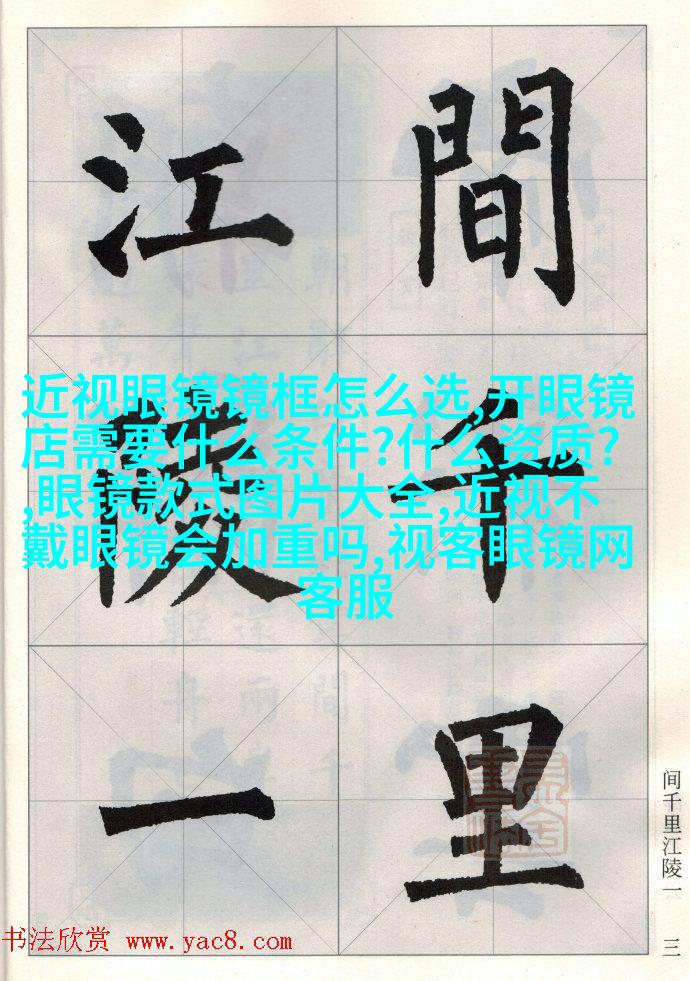 間
千
里
江
陵
一
近视眼镜镜框怎么选,开眼镜
店需要什么条件?什么资质?
,眼镜款式图片大全,近视不
戴眼镜会加重吗,视客眼镜网
客服
间千里江陵一 三
书法欣赏 www.yac8.com